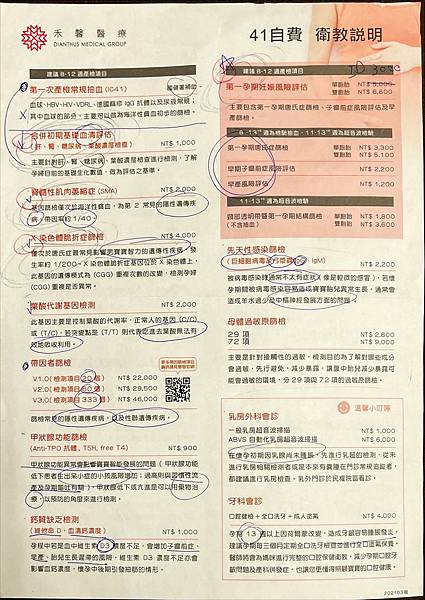 禾馨醫療
DIANTHUS MEDICAL GROUP
41自費 衛教說明
建議 8-12 週產檢項目
第一次產檢常規抽血 (IC41) 國健署補助
血球、HBV、HIV、VDRL、德國麻疹 IgG 抗體以及尿液常規;
其中血球的部分,主要可以做為海洋性貧血初步的篩檢。
合併初期基礎血清評估
(肝、腎、糖尿病、葉酸濃度檢查) NT$ 1,000
主要針對肝、腎、糖尿病、葉酸濃度檢查進行檢測,了解
孕婦目前的基礎生化數值,做為評估之基準。
脊髓性肌肉萎縮症 (SMA) NT$ 2,000
基因篩檢僅次於海洋性貧血,為第 2 常見的隱性遺傳疾
病,帶因率約 1/40。
X 染色體脆折症篩檢 NT$ 4,000
僅次於唐氏症最常見影響男寶寶智力的遺傳性疾病,發
生率約 1/200。X 染色體脆折症基因位於 X 染色體上,
此基因的遺傳模式為 (CGG) 重複次數的改變,檢測孕婦
(CGG) 重複是否異常。
葉酸代謝基因檢測 NT$ 2,000
此基因主要是控制葉酸的代謝率,正常人的基因 (C/C)
或 (T/C),若突變點是 (T/T) 則代表吃進去葉酸無法有
效地吸收利用。
帶因者篩檢
V1.0( 檢測項目 20 個 ) NT$ 22,000
V2.0( 檢測項目 60 個 ) NT$ 29,500
V3.0( 檢測項目 333 個 ) NT$ 46,000
篩檢常見的隱性遺傳疾病,以及性聯遺傳疾病。
甲狀腺功能篩檢
(Anti-TPO 抗體, TSH, free T4) NT$ 900
甲狀腺功能異常會影響寶寶智能發展的問題(甲狀腺功能
低下患者生出呆小症的小孩風險增加,過高則與習慣性流
產及孕期嘔吐有關)。甲狀腺低下或亢進是可以用藥物治
療,以預防的角度來進行檢測。
鈣質缺乏檢測
(維他命 D、血清鈣濃度) NT$ 1,000
孕程中若是血中維生素 D3 濃度不足,會增加子癲前症、
早產、胎兒生長遲滯的風險,維生素 D3 濃度不足亦會
影響血鈣濃度,懷孕中後期引發抽筋的情形。
建議 8-12 週產檢項目
第一孕期妊娠風險評估 單胞胎 NT$ 5,000
雙胞胎 NT$ 6,800
主要包含第一孕期唐氏症篩檢、子癲前症風險評估及早
產篩檢。
8-13+6 週為檢驗抽血、11-13+6 週為超音波檢驗
第一孕期唐氏症篩檢 單胞胎 NT$ 3,300
雙胞胎 NT$ 5,100
早期子癲前症風險評估 NT$ 2,200
早產風險評估 NT$ 1,200
11-13+6 週為超音波檢驗
頸部透明帶暨第一孕期結構篩檢 單胞胎 NT$ 1,800
(不含抽血) 雙胞胎 NT$ 3,600
先天性感染篩檢
(巨細胞病毒及弓漿蟲 IgG、IgM) NT$ 2,200
被病毒感染時通常不太有症狀(像是輕微的感冒),若懷
孕期間被病毒感染容易造成寶寶胎兒異常生長,通常會
造成羊水過少及中樞神經發展方面的問題。
母體過敏原篩檢
29 項 NT$ 2,600
72 項 NT$ 9,000
主要是針對接觸性的過敏,檢測目的為了解對誰些成分
會過敏,先行避免,減少暴露,讓腹中胎兒減少暴露可
能會過敏的環境,分 29 項與 72 項的過敏原篩檢。
溫馨小叮嚀
乳房外科會診
一般乳房超音波掃描 NT$ 1,000
ABVS 自動化乳房超音波掃描 NT$ 6,000
在懷孕初期因乳腺尚未腫脹,先進行乳超的檢測,從未
進行乳房相關檢測者或是本來有囊腫在門診常規追蹤者,
都建議進行乳房檢查,乳外門診於民權院區看診。
牙科會診
口腔健檢 + 全口洗牙 + 成人塗氟 NT$ 4,000
孕有 13 週以上因荷爾蒙改變,造成牙齦容易腫脹發炎,
建議孕期每三個月定期全口洗牙檢查並進行全口塗氟保養。
醫師將會為媽咪進行完整的口腔保健衛教,減少孕期口腔牙
齦問題及產科併發症,也讓您更懂得照顧寶寶的口腔健康。
202103版